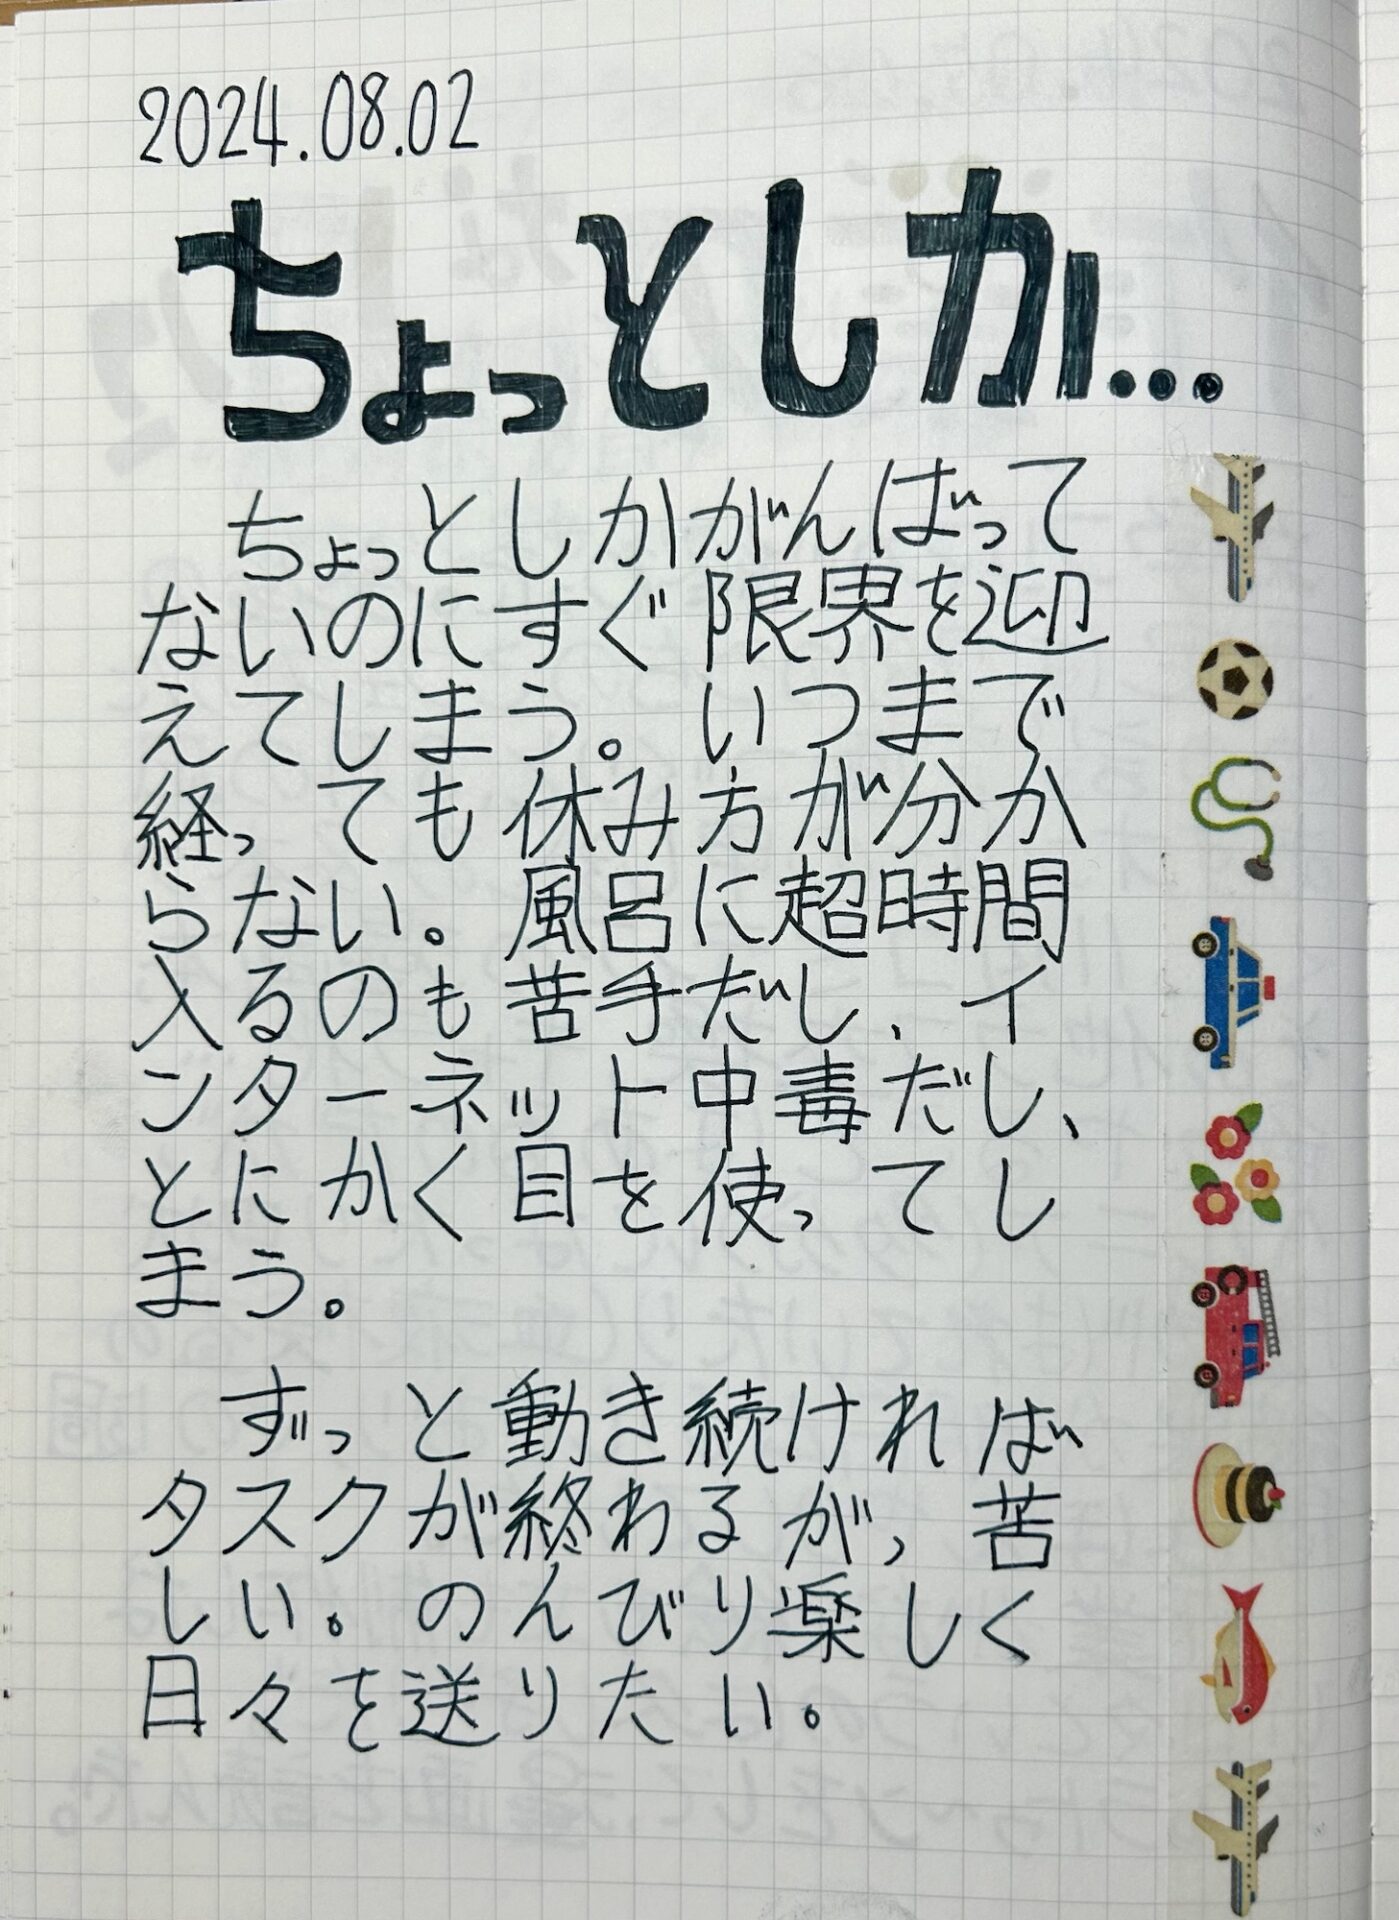 2024.08.02
ちょっとしか...
ちょっとしかがんばって
ないのにすぐ限界を迎
えてしまう。いつまで
経っても休み方が分か
らない。風呂に超時間
入るのも苦手だし、イ
ンターネット中毒だし、
とにかく目を使ってし
まう。
ずっと動き続ければ
タスクが終わるが、苦
しい。のんびり楽しく
日々を送りたい。